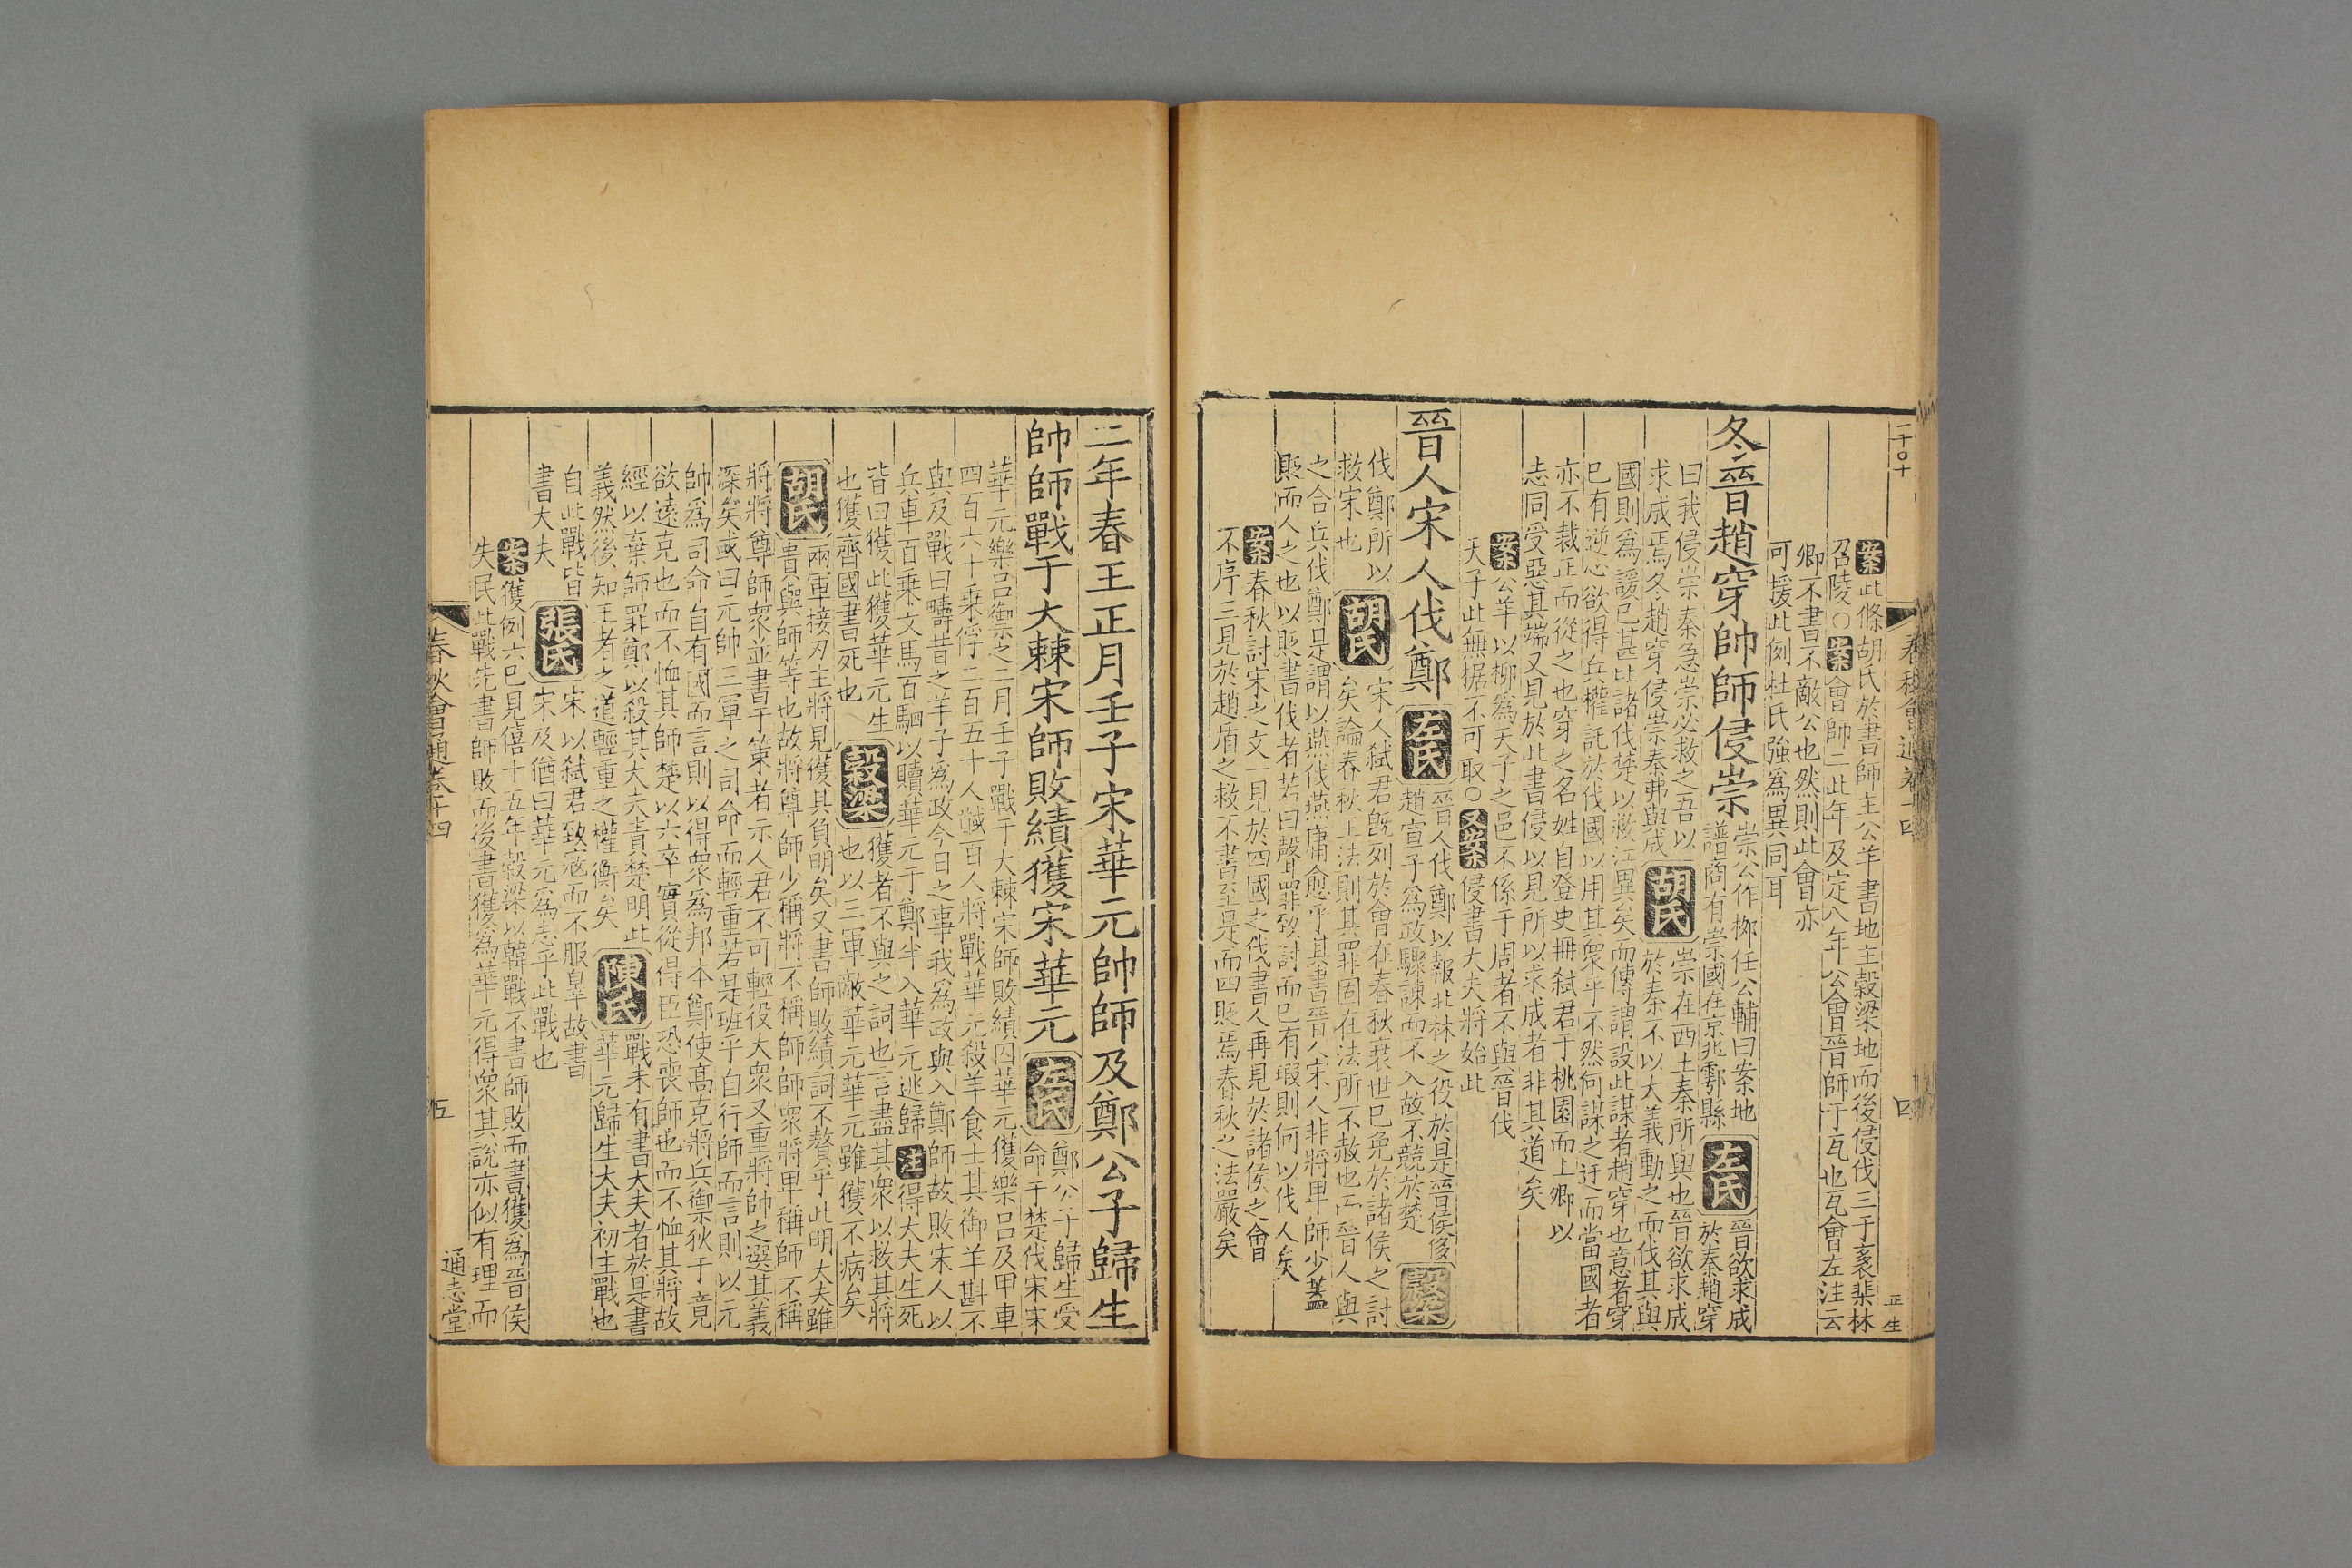 案此條胡氏於書師主公羊書地主穀梁地而後侵伐三于袲棐林
召陵○案會師二此年及定八年公會晉師于瓦也瓦會左注云
卿不書不敵公也然則此會亦
可援此例杜氏強爲異同耳
冬晉趙穿帥師侵崇
崇公作桺任公輔曰案地
譜商有崇國在京兆鄠縣
左氏
晉欲求成
於秦趙穿
曰我侵崇秦急崇必救之吾以
求成焉冬趙穿侵崇秦弗與成
胡氏
崇在西土秦所與也晉欲求成
於秦不以大義動之而伐其與
國則爲諼已甚比諸伐楚以救江異矣而傳謂設此謀者趙穿也意者穿
已有逆心欲得兵權託於伐國以用其衆乎不然何謀之迂而當國者
亦不裁正而從之也穿之名姓自登史冊弒君于桃園而上卿以
志同受惡其端又見於此書侵以見所以求成者非其道矣
案公羊以柳爲天子之邑不係于周者不與晉伐
天子此無据不可取○又案侵書大夫將始此
晉人宋人伐鄭
左氏
晉人伐鄭以報北林之役於是晉侯侈
趙宣子爲政驟諫而不入故不競於楚
穀梁
伐鄭所以
救宋也
胡氏
宋人弒君旣列於會在春秋衰世已免於諸侯之討
矣論春秋王法則其罪固在法所不赦也而晉人與
之合兵伐鄭是謂以燕伐燕庸愈乎其書晉人宋人非將卑師少蓋
貶而人之也以貶書伐者若曰聲罪致討而已有瑕則何以伐人矣
案春秋討宋之文一見於四國之伐書人再見於諸侯之會
不序三見於趙盾之救不書至是而四貶焉春秋之法嚴矣
二年春王正月壬子宋華元帥師及鄭公子歸生
帥師戰于大棘宋師敗績獲宋華元
左氏
鄭公子歸生受
命于楚伐宋宋
華元樂呂御之二月壬子戰于大棘宋師敗績囚華元獲樂呂及甲車
四百六十乗俘二百五十人馘百人將戰華元殺羊食士其御羊斟不
與及戰曰疇昔之羊子爲政今日之事我爲政與入鄭師故敗宋人以
兵車百乗文馬百駟以贖華元于鄭半入華元逃歸注得大夫生死
皆曰獲此獲華元生
也獲齊國書死也
穀梁
獲者不與之詞也言盡其衆以救其將
也以三軍敵華元華元雖獲不病矣
胡氏
兩軍接刃主將見獲其負明矣又書師敗績詞不贅乎此明大夫雖
貴與師等也故將尊師少稱將不稱師師衆將卑稱師不稱
將將尊師衆並書于策者示人君不可輕役大衆又重將帥之選其義
深矣或曰元帥三軍之司命而輕重若是班乎自行師而言則以元
帥爲司命自有國而言則以得衆爲邦本鄭使高克將兵禦狄于竟
欲遠克也而不恤其師楚以六卒實從得臣恐喪師也而不恤其將故
經以棄師罪鄭以殺其大夫責楚明此
義然後知王者之道輕重之權衡矣
陳氏
戰未有書大夫者於是書
華元歸生大夫初主戰也
自此戰皆
書大夫
張氏
宋以弒君致寇而不服辠故書
宋及猶曰華元爲志乎此戰也
案獲例六巳見僖十五年穀梁以韓戰不書師敗而書獲爲晉侯
失民此戰先書師敗而後書獲爲華元得衆其說亦似有理而
春秋會通卷十四
五
通志堂